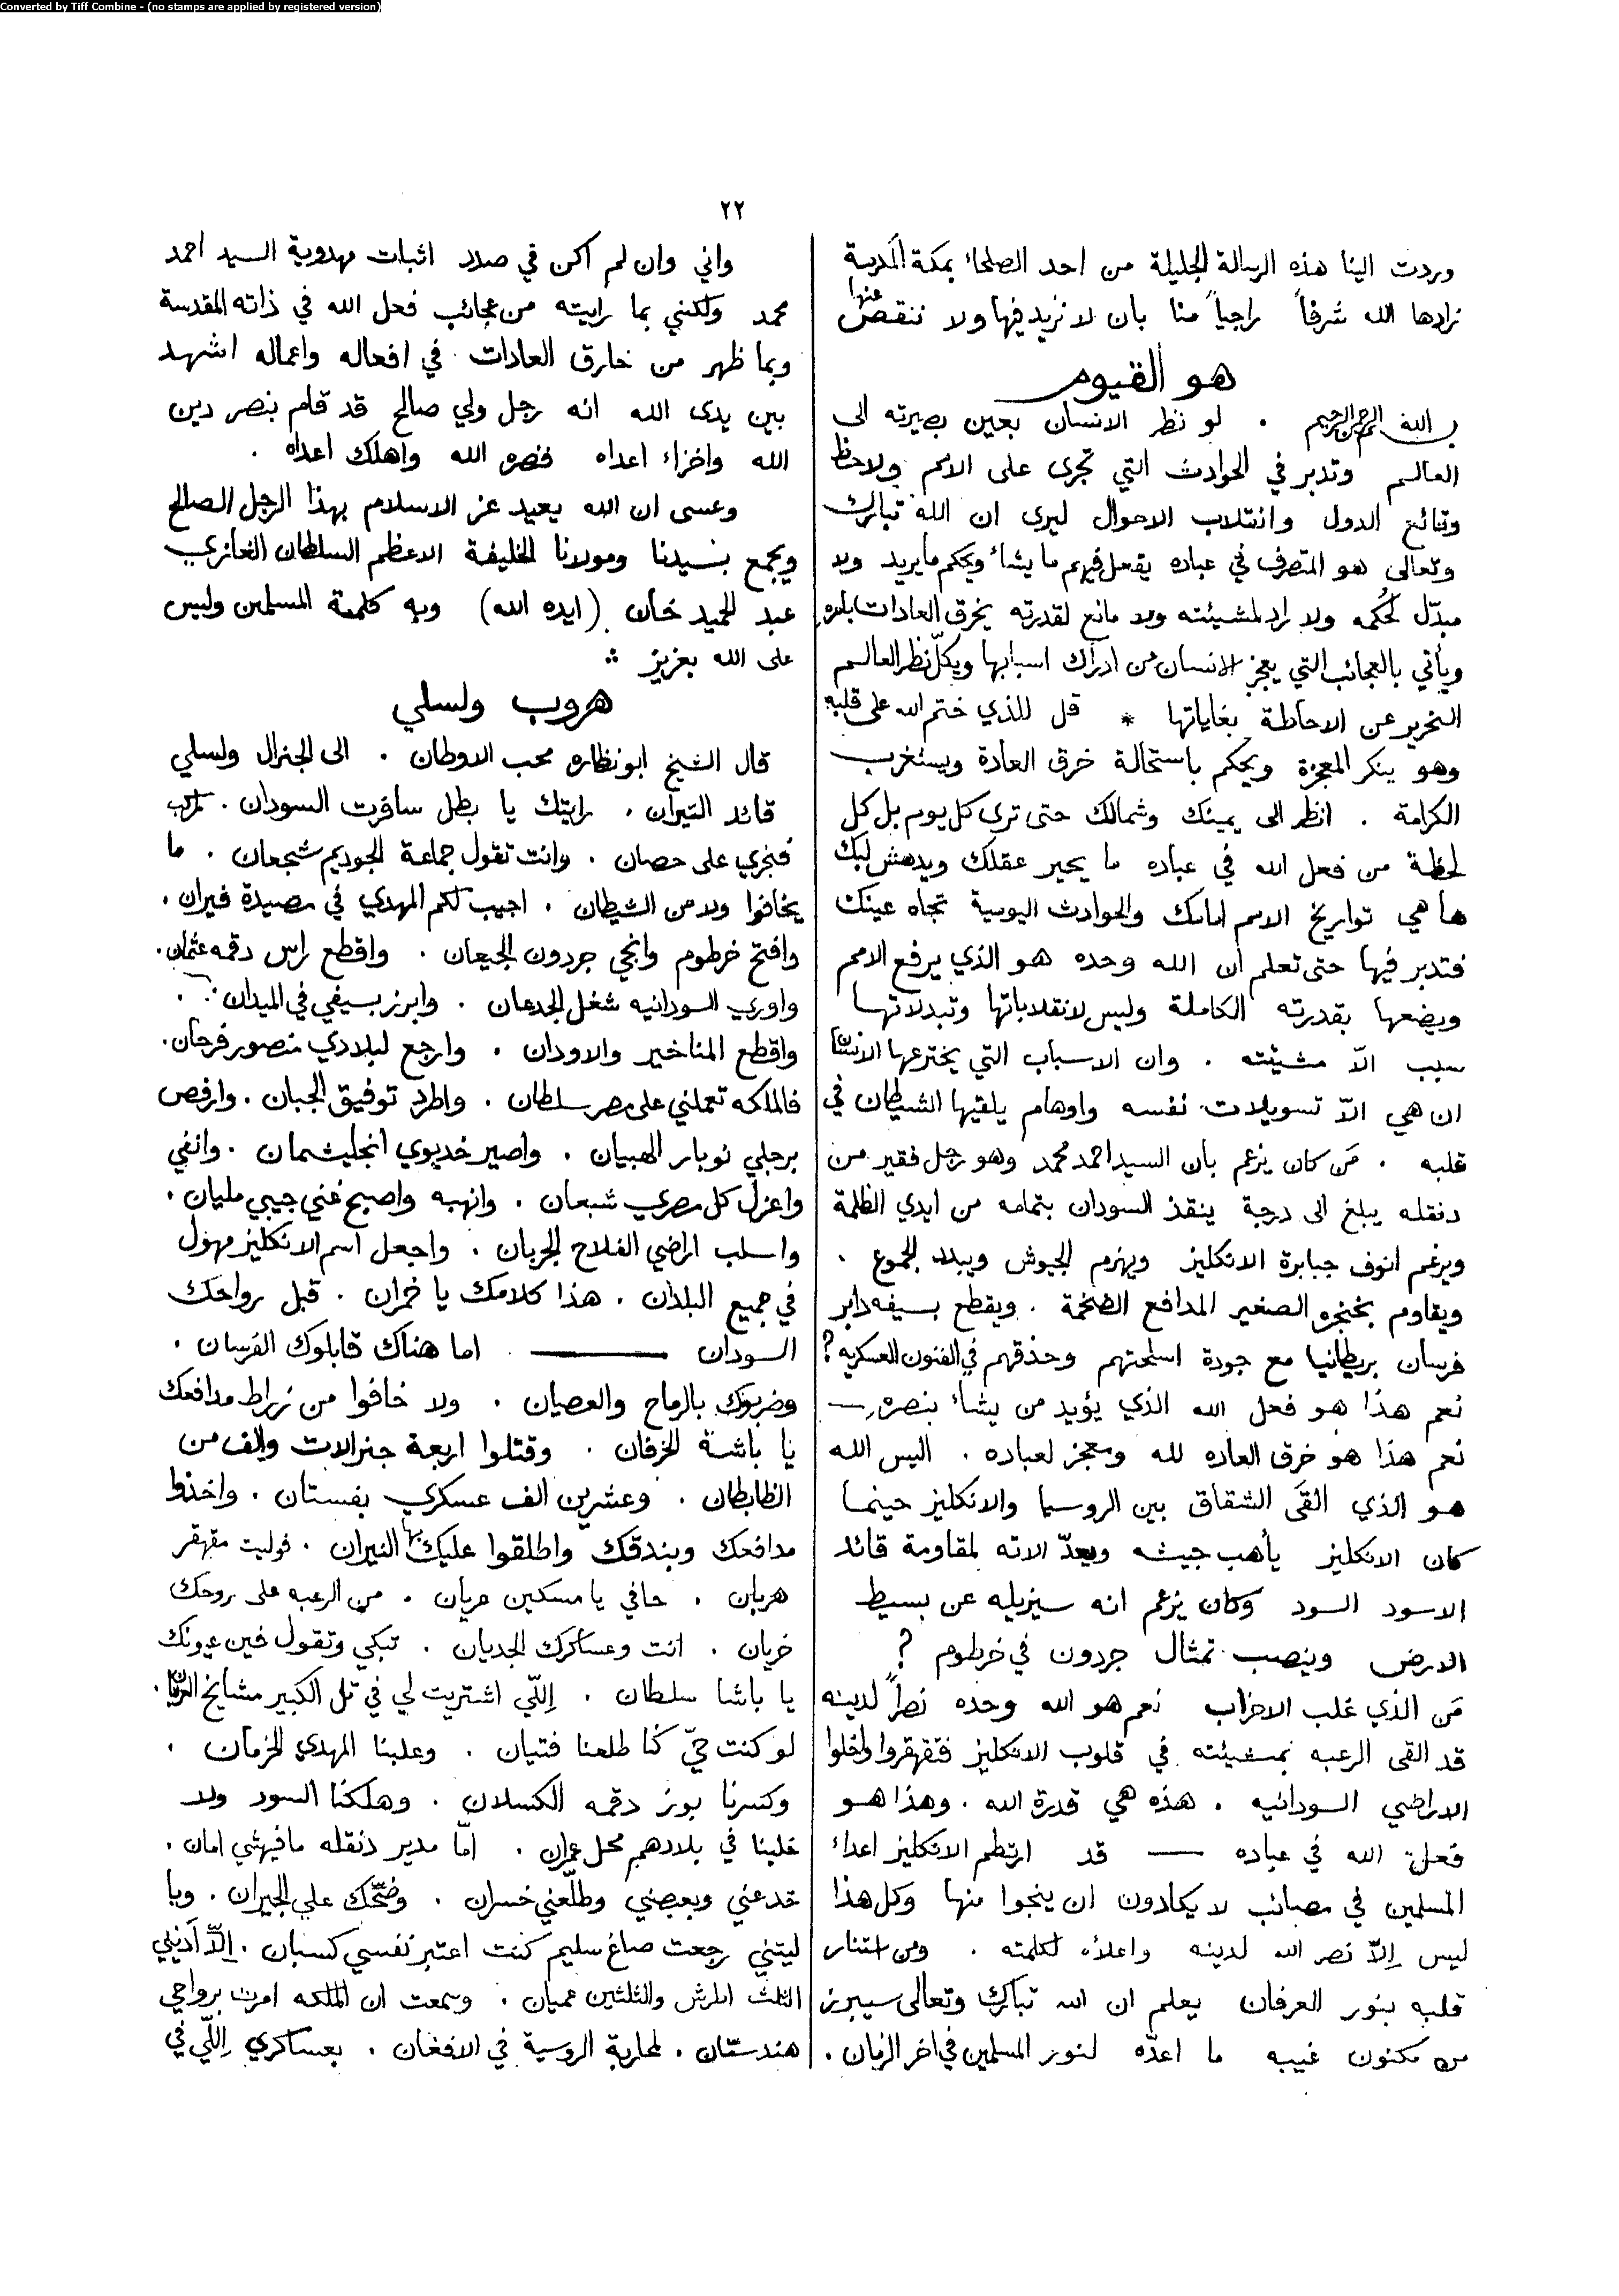 Converted by Tiff Combine - (no stamps are applied by registered version)
٢٢
وردت الينا هذه الرسالة الجليلة من احد الصلحاء بمكة المكرمة
زادها الله شرفاً راجياً منا بان لا نزيد فيها ولا ننقص عنها
هو القيوم
بسم الله الرحمن الرحيم . لو نظر الانسان بعين بصيرته الى
العالم وتدبر في الحوادث التي تجرى على الامم ولاحظ
وقائع الدول وانقلاب الاحوال ليرى ان الله تبارك
وتعالى هو المتصرف في عباده يفعل فيهم ما يشاء ويحكم ما يريد ولا
مبدّل لحُكمه ولا راد لمشيئته ولا مانع لقدرته يخرق العادات بامره
ويأتي بالعجائب التي يعجز الانسان من ادراك اسبابها ويكلّ نظر العالم
النحرير عن الاحاطة بغاياتها * قل للذي ختم الله على قلبه
وهو ينكر المعجزة ويحكم باستحالة خرق العادة ويستغرب
الكرامة . انظر الى يمينك وشمالك حتى ترى كل يوم بل كل
لحظة من فعل الله في عباده ما يحير عقلك ويدهش لبك
ها هي تواريخ الامم امامك والحوادث اليومية تجاه عينك
فتدبر فيها حتى تعلم ان الله وحده هو الذي يرفع الامم
ويضعها بقدرته الكاملة وليس لانقلاباتها وتبدلاتها
سبب الاّ مشيئته . وان الاسباب التي يخترعها الانسان
ان هي الاّ تسويلات نفسه واوهام يلقيها الشيطان في
قلبه . مَن كان يزعم بان السيد احمد محمد وهو رجل فقير من
دنقله يبلغ الى درجة ينقذ السودان بتمامه من ايدي الظلمة
ويرغم انوف جبابرة الانكليز ويهزم الجيوش ويبدد الجموع .
ويقاوم بخنجره الصغير المدافع الضخمة . ويقطع بسيفه دابر
فرسان بريطانيا مع جودة اسلحتهم وحذقهم في الفنون العسكريه ؟
نعم هذا هو فعل الله الذي يؤيد من يشاء بنصره —
نعم هذا هو خرق العاده لله ومعجز لعباده . اليس الله
هو الذي القَى الشقاق بين الروسيا والانكليز حينما
كان الانكليز يأهب جيشه ويعدّ الاته لمقاومة قائد
الاسود السود وكان يزعم انه سيزيله عن بسيط
الارض وينصب تمثال جردون في خرطوم ؟
مَن الذي غلب الاحزاب نعم هو الله وحده نصراً لدينه
قد القى الرعبه بمشيئته في قلوب الانكليز فتقهقروا واخلوا
الاراضي السودانيه . هذه هي قدرة الله . وهذا هو
فعل الله في عباده — قد ارتطم الانكليز اعداء
المسلمين في مصائب لا يكادون ان ينجوا منها وكل هذا
ليس اِلاّ نصر الله لدينه واعلاء لكلمته . ومن استنار
قلبه بنور العرفان يعلم ان الله تبارك وتعالى سيبرز
من مكنون غيبه ما اعدّه لنور المسلمين في اخر الزمان .
واني وان لم اكن في صدد اثبات مهدوية السيد احمد
محمد ولكنني بما رايته من عجائب فعل الله في ذاته المقدسة
وبما ظهر من خارق العادات في افعاله واعماله اشهد
بين يدى الله انه رجل ولي صالح قد قام بنصر دين
الله واخزاء اعداه فنصره الله واهلك اعداه .
وعسى ان الله يعيد عز الاسلام بهذا الرجل الصالح
ويجمع بسيدنا ومولانا الخليفة الاعظم السلطان الغازي
عبد الحميد خان (ايده الله) وبه كلمة المسلمين وليس
على الله بعزيز
هروب ولسلي
قال الشيخ ابو نظاره محب الاوطان . الى الجنرال ولسلي
قائد التيران . رايتك يا بطل سافرت السودان .
فنجري على حصان . وانت تقول جماعة الجوديم شجعان . ما
يخافوا ولا من الشيطان . اجيب لكم المهدي في مصيدة فيران .
وافتح خرطوم وانجي جردون الجيعان . واقطع راس دقمه عثمان .
واوري السودانيه شغل الجدعان . وابرز بسيفي في الميدان .
واقطع المناخير والاودان . وارجع لبلادي منصور فرحان .
فالملكه تعملني على مصر سلطان . واطرد توفيق الجبان . وارفص
برجلي نوبار الهبيان . واصير خديوي انجليشمان . وانفي
واعزل كل مصري شبعان . وانهبه واصبح غني جيبي مليان .
واسلب اراضي الفلاح الجربان . واجعل اسم الانكليز مهول
في جميع البلدان . هذا كلامك يا خمران . قبل رواحك
السودان — اما هناك قابلوك الفرسان .
وضربوك بالرماح والعصيان . ولا خافوا من زراط مدافعك
يا باشة الخرفان . وقتلوا اربعة جنرالات والف من
الظابطان . وعشرين الف عسكري بفستان . واخذوا
مدافعك وبندقك واطلقوا عليك بها النيران . فوليت مقهقر
هربان . حافي يا مسكين عريان . من الرعبه على روحك
خريان . انت وعساكرك الجديان . تبكي وتقول فين عيونك
يا باشا سلطان . اِللّي اشتريت لي في تل الكبير مشايخ العربان .
لو كنت حيّ كنا طلعنا فتيان . وغلبنا المهدي الخرمان .
وكسرنا بوز دقمه الكسلان . وهلكنا السود ولا
خلينا في بلادهم محل عمران . امّا مدير دنقله ما فيهشي امان .
خدعني وبعبصني وطلّعني خسران . وضحّك علي الجيران . ويا
ليتني رجعت صاغ سليم كنت اعتبر نفسي كسبان . اِلاّ
الثلث اطرش والثلثين عميان . وسمعت ان الملكه امرت برواحي
هندستان . لمحاربة الروسية في الافغان . بعساكري اِللّي في